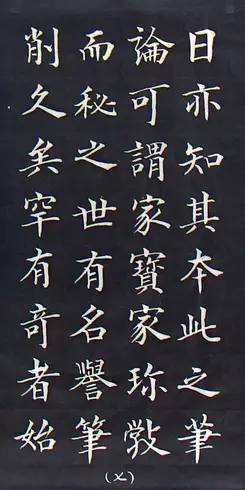 日亦知其本此之筆
論可謂家寶家珎敩
而秘之世有名譽筆
削久矣罕有奇者始
(乂)